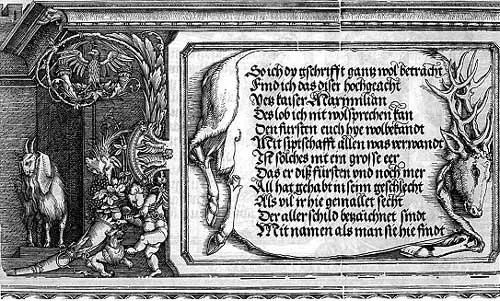 So ich dy gschrifft gantz wol betracht
Find ich das diser hochgeacht
Vest kaiser Maximilian
Des lob ich nit volsprechen kan
Den fürsten euch hye wolbekandt
Mit siptschafft allen was verwandt
Ist solches nit ein grosse eer
Das er diß fürsten vnd noch mer
All hat gehabt in seim geschlecht
Als vil ir hie gemallet secht
Der aller schild bezaichnet sindt
Mit namen als man sie hie findt